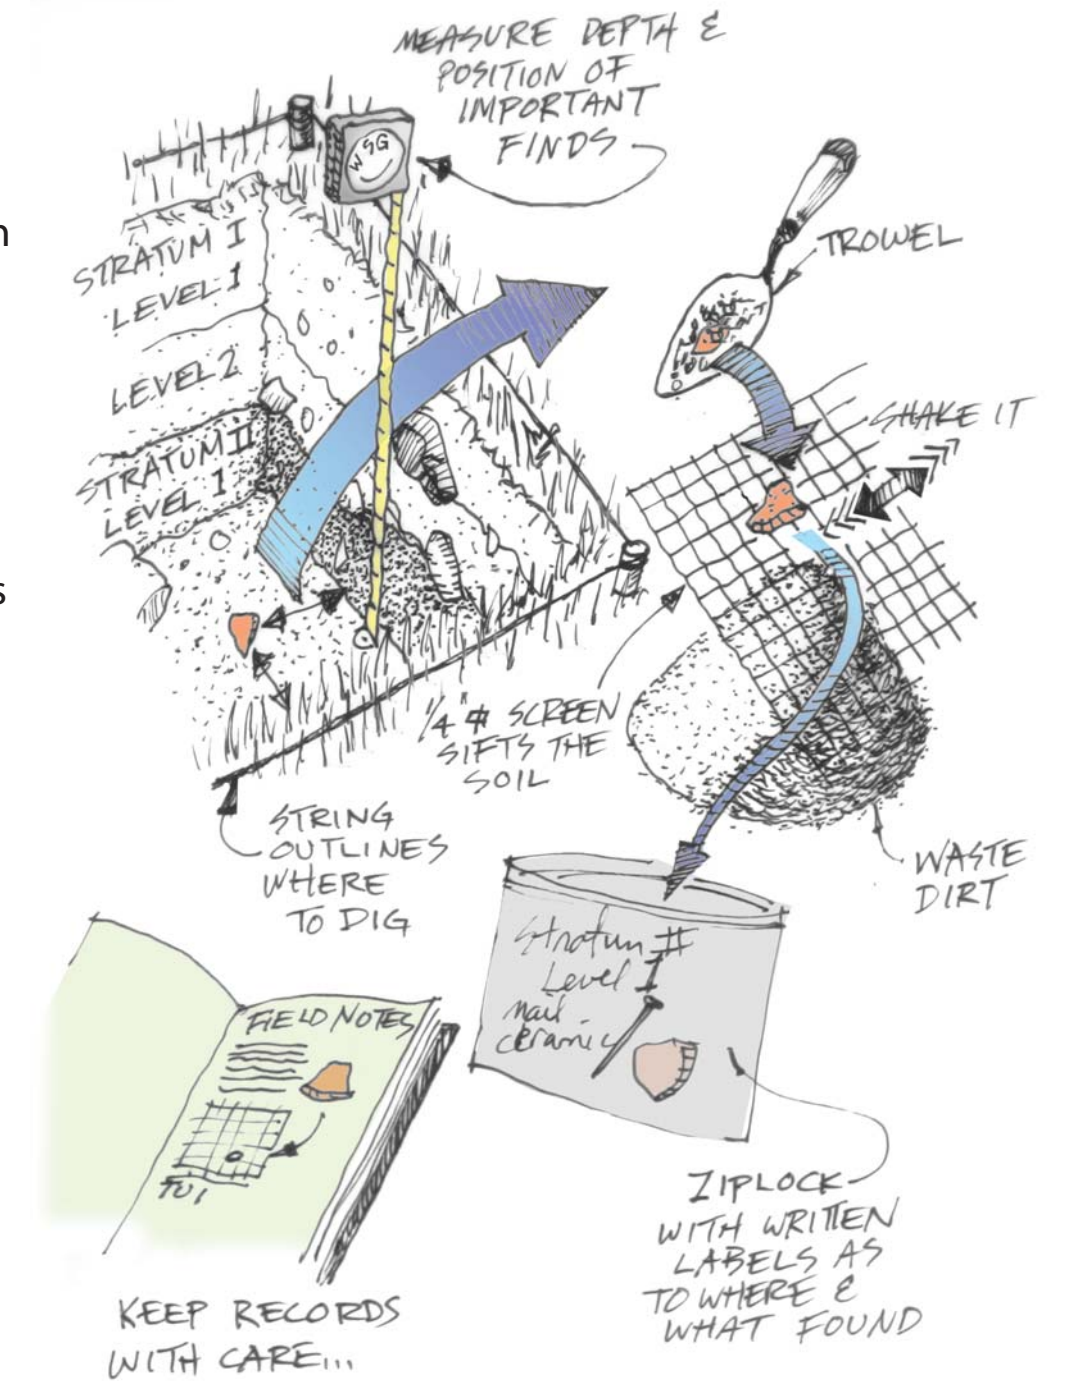 MEASURE DEPTH &
POSITION OF
IMPORTANT
FINDS
WSG
STRATUM I
LEVEL 1
LEVEL 2
STRATUM II
LEVEL 1
TROWEL
SHAKE IT
1/4" # SCREEN
SIFTS THE
SOIL
STRING
OUTLINES
WHERE
TO DIG
WASTE
DIRT
Stratum II
Level I
nail
ceramic
FIELD NOTES
ZIPLOCK
WITH WRITTEN
LABELS AS
TO WHERE &
WHAT FOUND
KEEP RECORDS
WITH CARE...
n
s